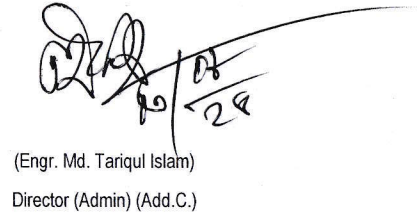 (Engr. Md. Tariqul Islam)
Director (Admin) (Add.C.)